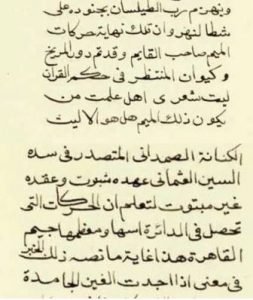 وينهزم رب الطيلسان بجنوده على
شطا لنهر وان تلك نهاية حركات
الميم صاحب القايم وقد تم دور المريخ
وكيوان المنتظر فى حكم القران
ليت شعرى اهل علمت من
يكون ذلك الميم هل هو الا ليث
الكنانة الصمدانى المتصدر فى سده
السين العثمانى عهده مثبوت وعقده
غير مبتوت لتعلم ان الحركات التى
تحصل فى الدائرة اسها ومعظمها جيم
القاهرة هذا غاية ما نصه ذلك
فى معنى اذا اجدت الغين الجامدة